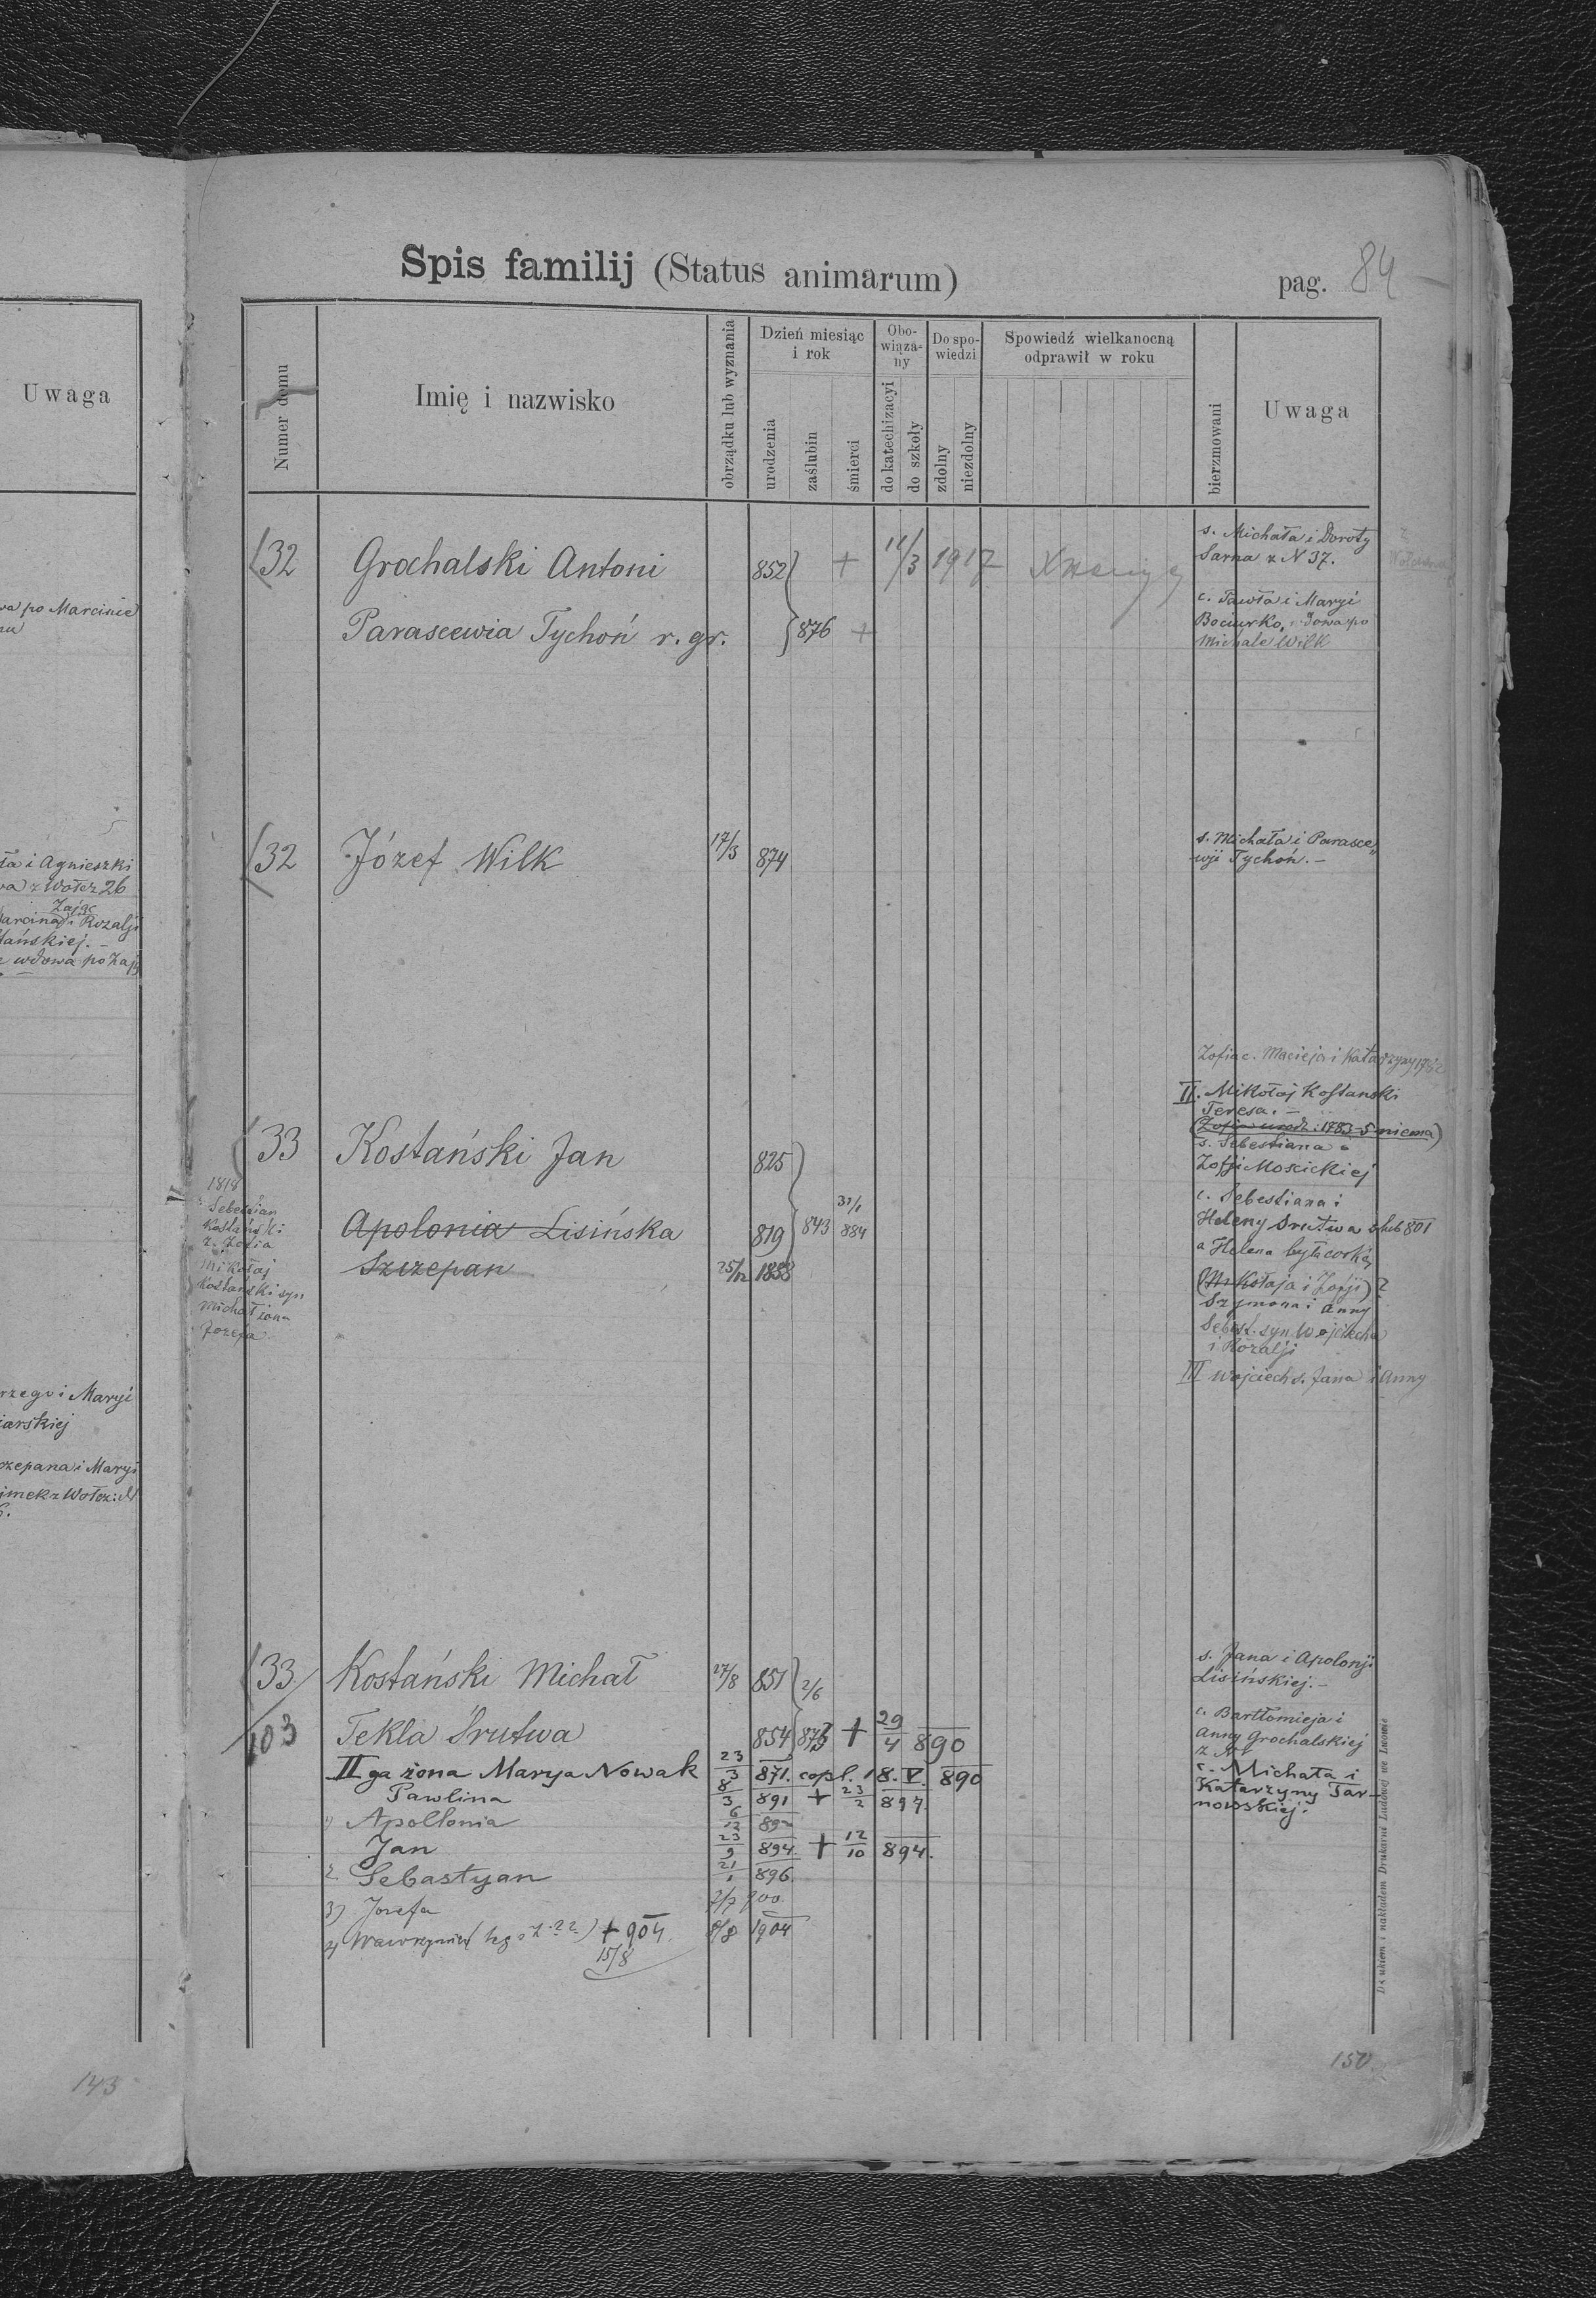 Uwaga
wa po Marcinie
ła i Agnieszki
wa z Wołcz 26
Zając
Marcina i Rozalji
wdowa po Zają
rzego i Maryi
iarskiej
zczepana i Maryi
imek z Wołcz: N
143
Spis familij (Status animarum)
pag. 84
Numer domu
Imię i nazwisko
obrządku lub wyznania
Dzień miesiąc i rok
urodzenia
zaślubin
śmierci
Obowiązany
do katechizacyi
do szkoły
Do spowiedzi
zdolny
niezdolny
Spowiedź wielkanocną odprawił w roku
bierzmowani
Uwaga
32 Grochalski Antoni 852 + 11/3 1917
s. Michała i Doroty
Sarna z N 37.
Parascewia Tychoń r. gr. 876 +
c. Pawła i Maryi
Bociurko, wdowa po
Michale Wilk
32 Józef Wilk 17/3 874
s. Michała i Parasce„
wji Tychoń. –
Zofia c. Macieja i Katarzyny
II. Mikołaj Kostanski
Teresa. –
(Zofia urodz. 1783-5 niema)
33 Kostański Jan 825
s. Sebestiana i
Zofji Moscickiej
1818
Sebestian
Kostański
z. Zofia
Mikołaj
Kostański syn
Michał żona
Jozefa
Apolonia Lisińska 819 843 31/1 884
c. Sebestiana i
Heleny Srutwa slub 801
a Helena była córką
Szczepan 25/12 1858
(Mikołaja i Zofji) ?
Szymona i Anny
Sebest. syn Wojciecha
i Rozalji
III Wojciech s. Jana i Anny
33 Kostański Michał 27/8 851 2/6
s. Jana i Apolonji
Lisińskiej. –
103 Tekla Srutwa 854 873 + 29/4 890
c. Bartłomieja i
Anny Grochalskiej
II ga żona Marya Nowak 23/3 871. copl. 18. V. 890
c. Michała i
Katarzyny Tar-
nowskiej.
Pawlina 8/3 891 + 23/2 897.
1) Apollonia 6/12 892
Jan 23/9 894. + 12/10 894.
2 Sebastyan 21/1 896.
3) Jozefa 7/7 900.
4) Wawrzyniec + 904 8/8 1904
15/8
150
Drukiem i nakładem Drukarni Ludowej we Lwowie